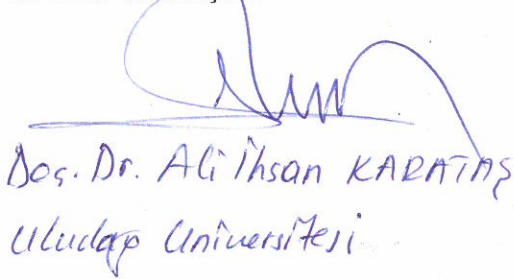 Doç. Dr. Ali İhsan KARATAŞ
Uludağ Üniversitesi